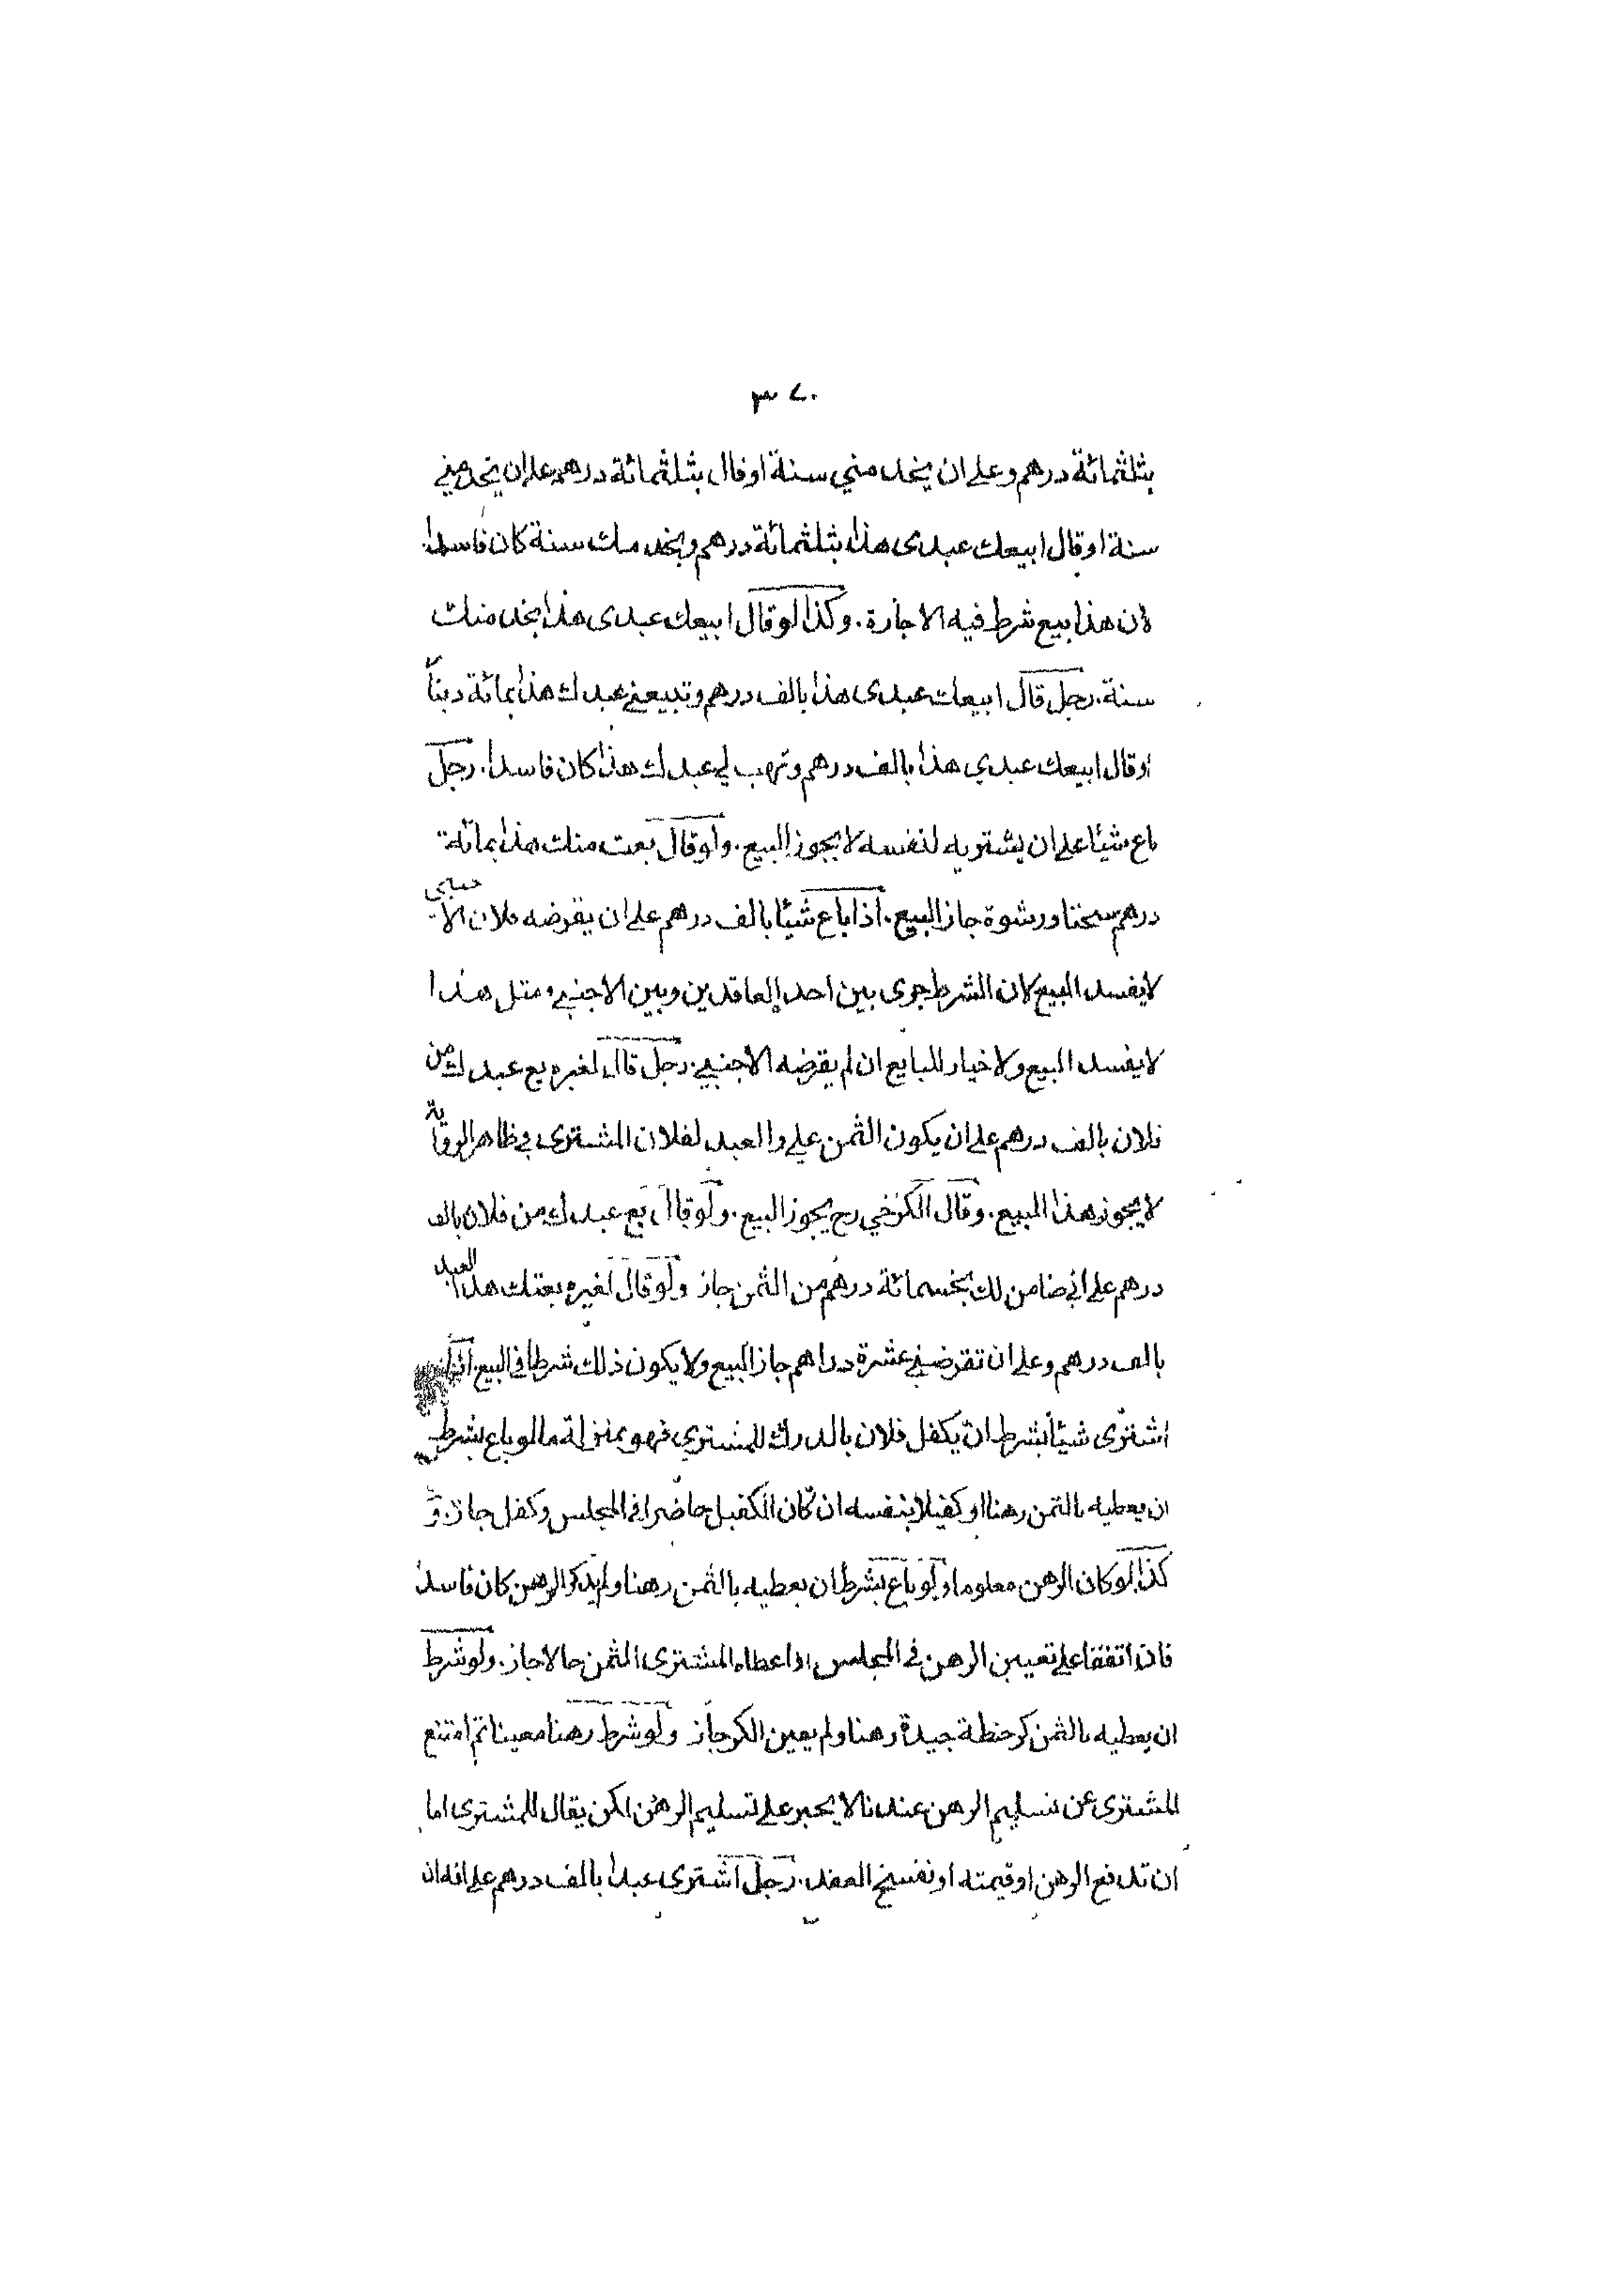 ٣٧٠
بثلثمائة درهم وعلى ان يخدمني سنة او قال بثلثمائة درهم على ان يخدمني
سنة او قال ابيعك عبدى هذا بثلثمائة درهم ويخدمك سنة كان فاسدا
لان هذا بيع شرط فيه الاجارة. وكذا لو قال ابيعك عبدى هذا بخدمتك
سنة. رجل قال ابيعك عبدى هذا بالف درهم وتبيعني عبدك هذا بمائة دينار
او قال ابيعك عبدي هذا بالف درهم وتهب لي عبدك هذا كان فاسدا. رجل
باع شيئا على ان يشتريه لنفسه لا يجوز البيع. ولو قال بعت منك هذا بمائة
درهم سحتا ورشوة جاز البيع. اذا باع شيئا بالف درهم على ان يقرضه فلان الاجنبي
لا يفسد البيع لان الشرط جرى بين احد العاقدين وبين الاجنبي ومثل هذا
لا يفسد البيع ولا خيار للبايع ان لم يقرضه الاجنبي. رجل قال لغيره بع عبدك من
فلان بالف درهم على ان يكون الثمن علي والعبد لفلان المشترى في ظاهر الرواية
لا يجوز هذا البيع. وقال الكرخي رح يجوز البيع. ولو قال بع عبدك من فلان بالف
درهم على اني ضامن لك بخمسمائة درهم من الثمن جاز ولو قال لغيره بعتك هذا العبد
بالف درهم وعلى ان تقرضني عشرة دراهم جاز البيع ولا يكون ذلك شرطا في البيع. اذا
اشترى شيئا بشرط ان يكفل فلان بالدرك للمشتري فهو بمنزلة ما لو باع بشرط
ان يعطيه بالثمن رهنا او كفيلا بنفسه ان كان الكفيل حاضرا في المجلس وكفل جاز. و
كذا لو كان الرهن معلوما ولو باع بشرط ان يعطيه بالثمن رهنا ولم يذكر الرهن كان فاسدا
فان اتفقا على تعيين الرهن في المجلس او اعطاه المشترى الثمن حالا جاز. ولو شرط
ان يعطيه بالثمن كر حنطة جيدة رهنا ولم يعين الكر جاز ولو شرط رهنا معينا ثم امتنع
المشترى عن تسليم الرهن عندنا لا يجبر على تسليم الرهن لكن يقال للمشترى اما
ان تدفع الرهن او قيمته او نفسخ العقد. رجل اشترى عبدا بالف درهم على انه ان